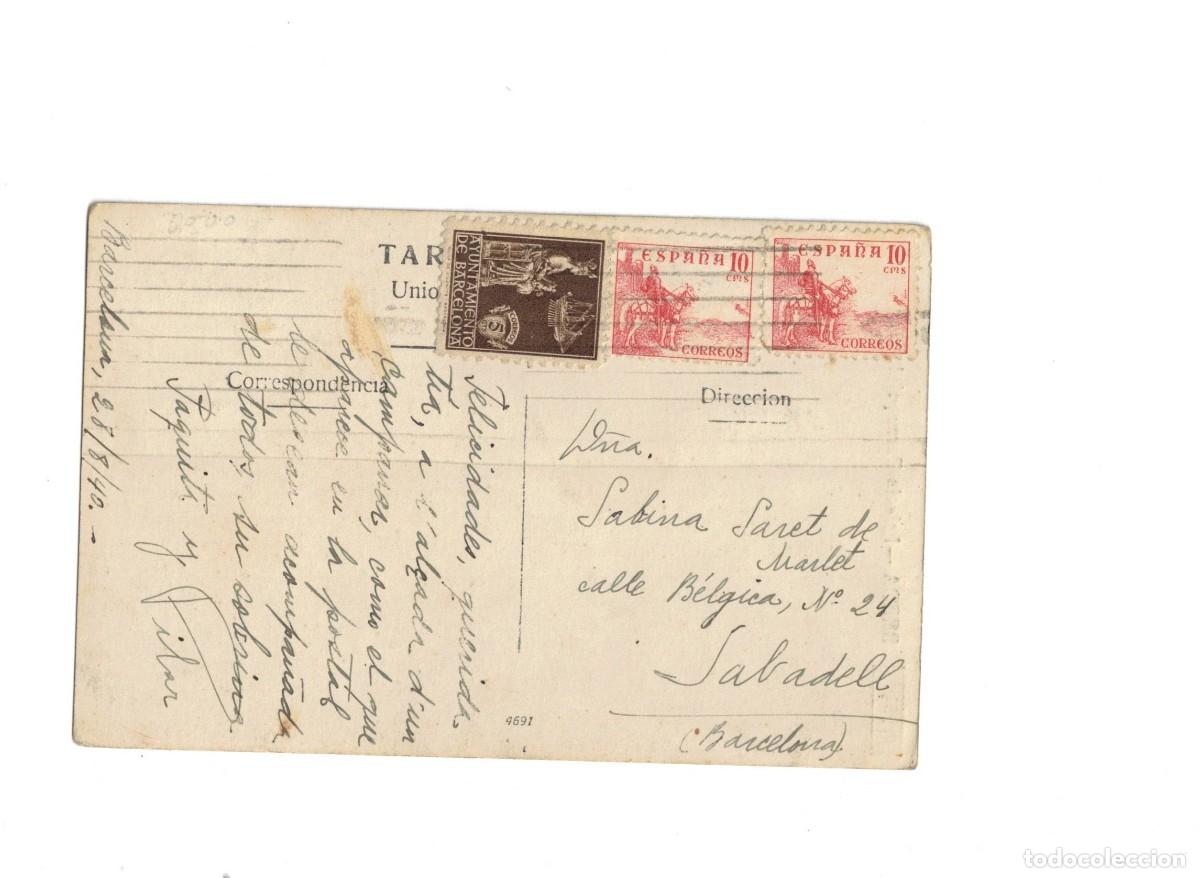 TAR
Unio
Correspondencia
Direccion
AYUNTAMIENTO
DE BARCELONA
5
CORREO
ESPAÑA 10
CTS
CORREOS
ESPAÑA 10
CTS
CORREOS
Barcelona, 28/8/40.-
Felicidades, querida
tía, a l'alçada d'un
Campanar, como el que
aparece en la postal
le desean acompañada
de todos, su sobrina
Paquita y
Pilar
Dña.
Sabina Saret de
Marlet
calle Bélgica, Nº 24
Sabadell
(Barcelona)
4691
todocoleccion